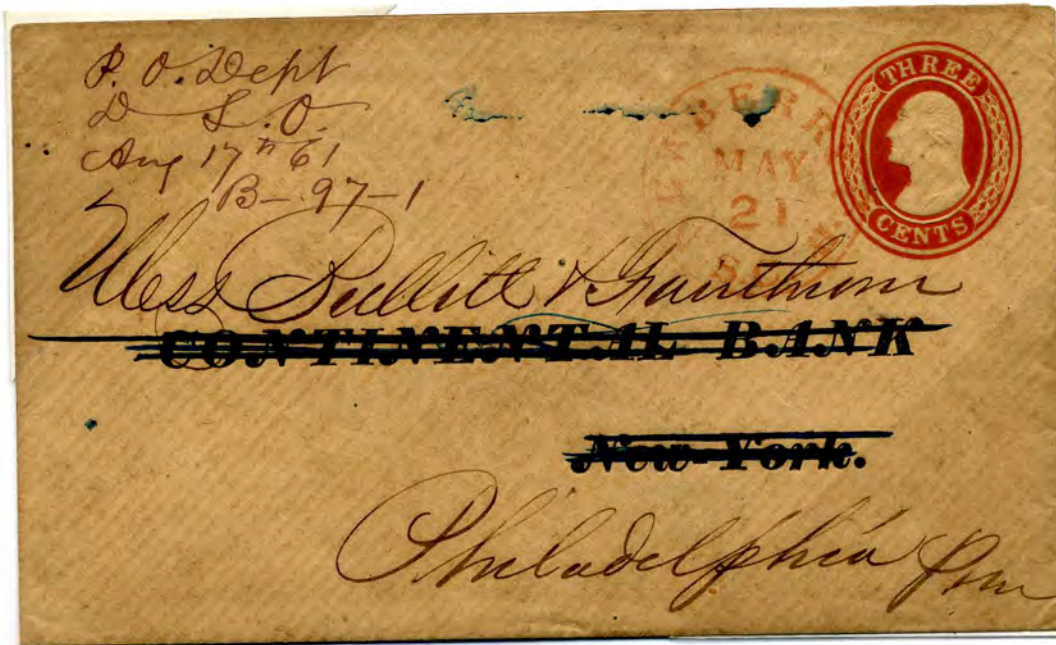 P. O. Dept
D. L. O.
Aug 17th 61
B-97-1
THREE
CENTS
MAY
21
Mess & Fairthorn
CONTINENTAL BANK
New-York.
Philadelphia